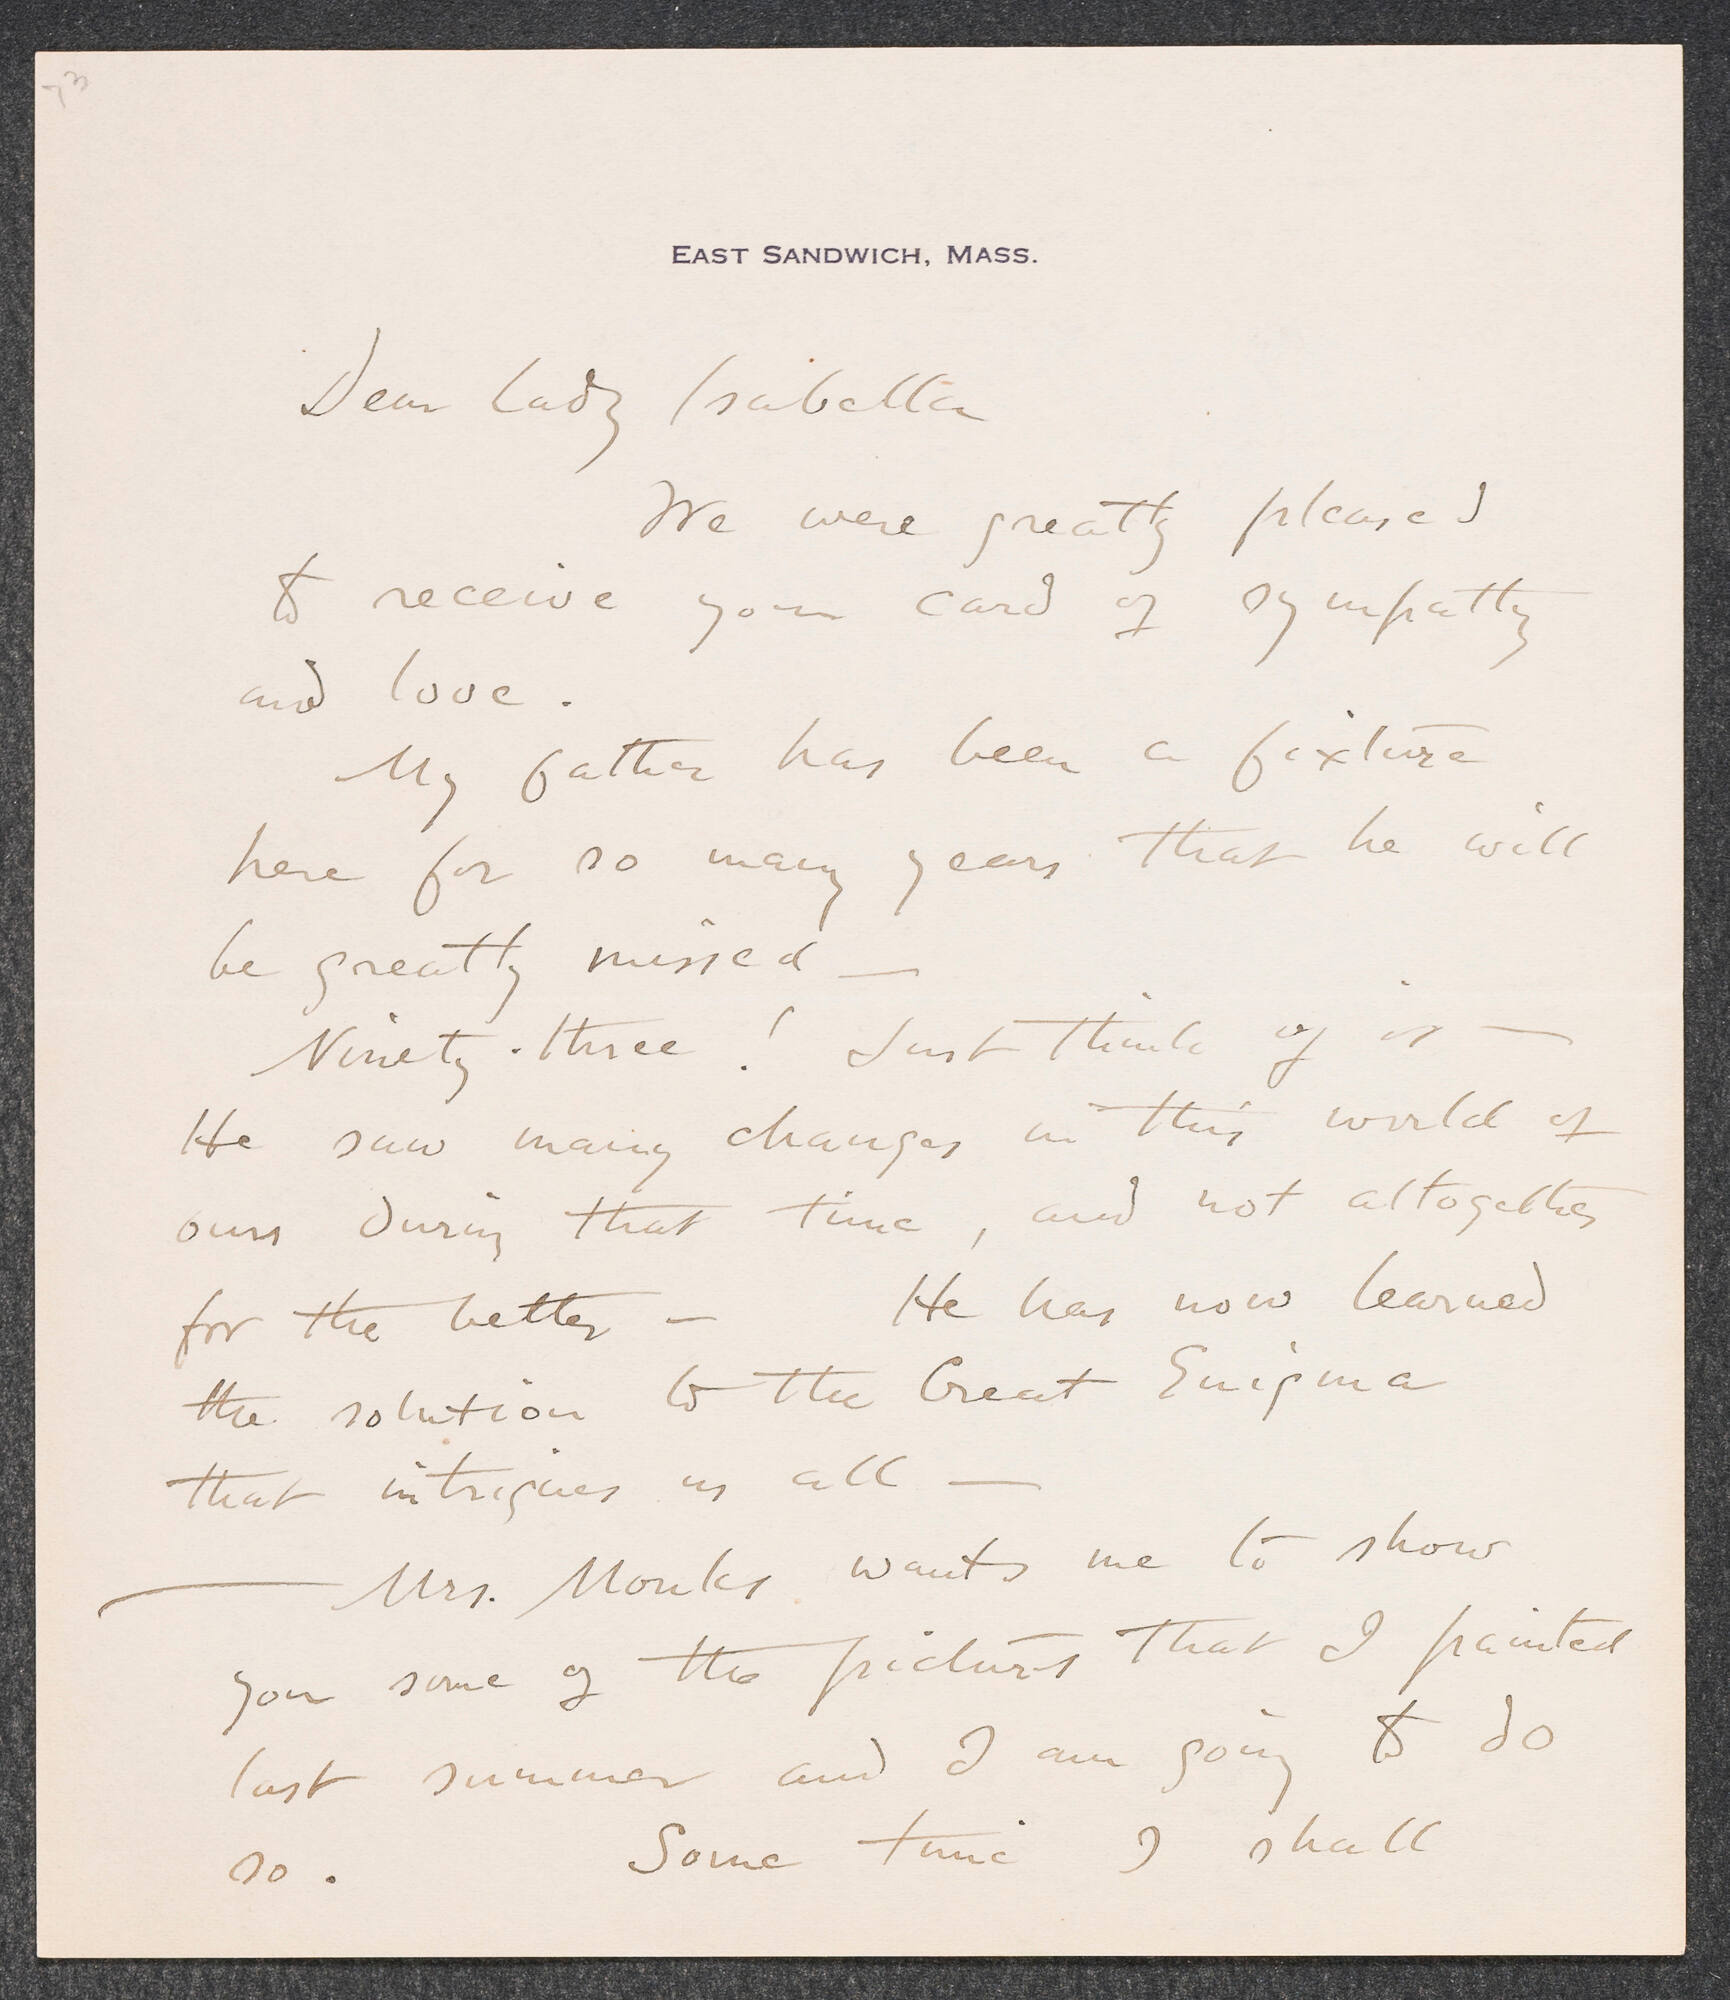 73
EAST SANDWICH, MASS.
Dear Lady Isabella
We were greatly pleased
to receive your card of sympathy
and love.
My father has been a fixture
here for so many years that he will
be greatly missed —
Ninety-three! Just think of it —
He saw many changes in this world of
ours during that time, and not altogether
for the better — He has now learned
the solution to the Great Enigma
that intrigues us all —
— Mrs. Monks wants me to show
you some of the pictures that I painted
last summer and I am going to do
so. Some time I shall